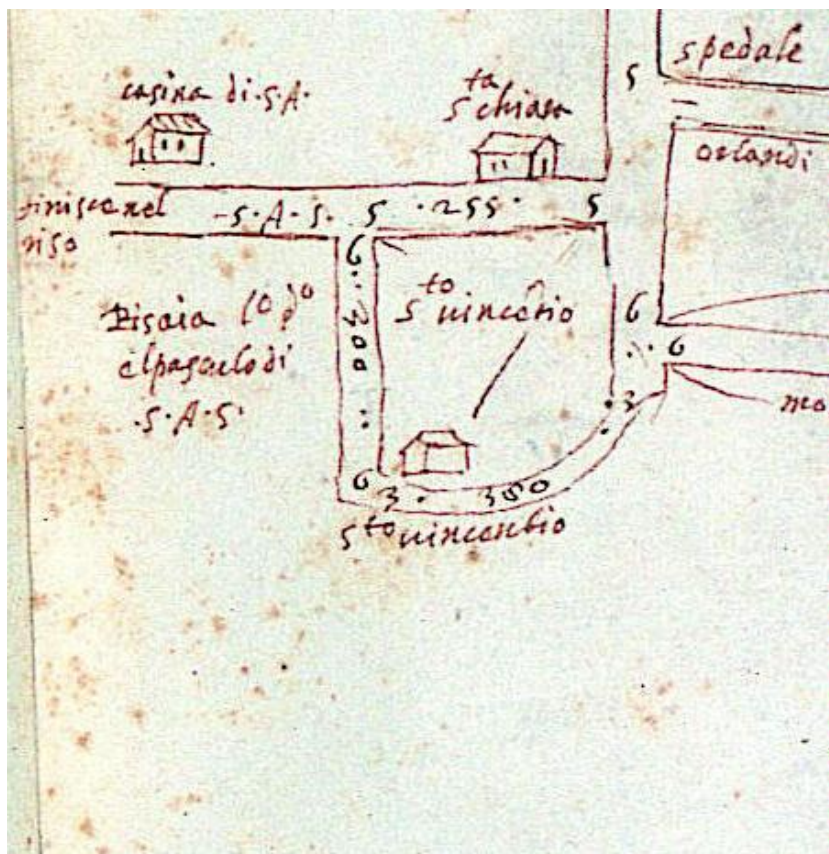 spedale
5
casina di·S·A·
s^ta chiara
orlandi
finisce nel
riso
·S·A·S· 5 ·255· 5
6
300
s^to vincētio
Risaia
el pascolo di
·S·A·S·
6
6
3
mo
6 3· 350
s^to vincentio